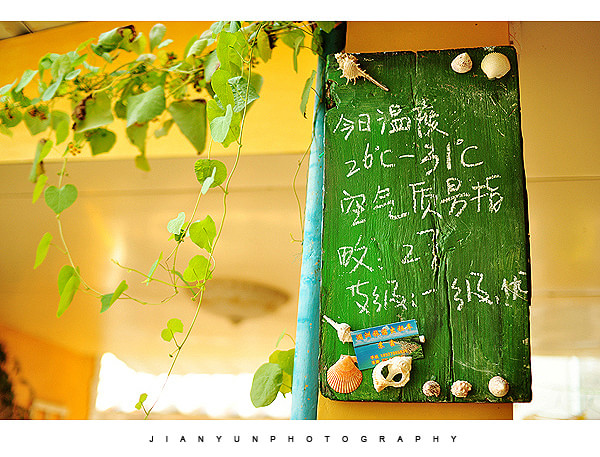 今日温度
26℃-31℃
空气质量指
数:27
级:一级,优
JIANYUNPHOTOGRAPHY